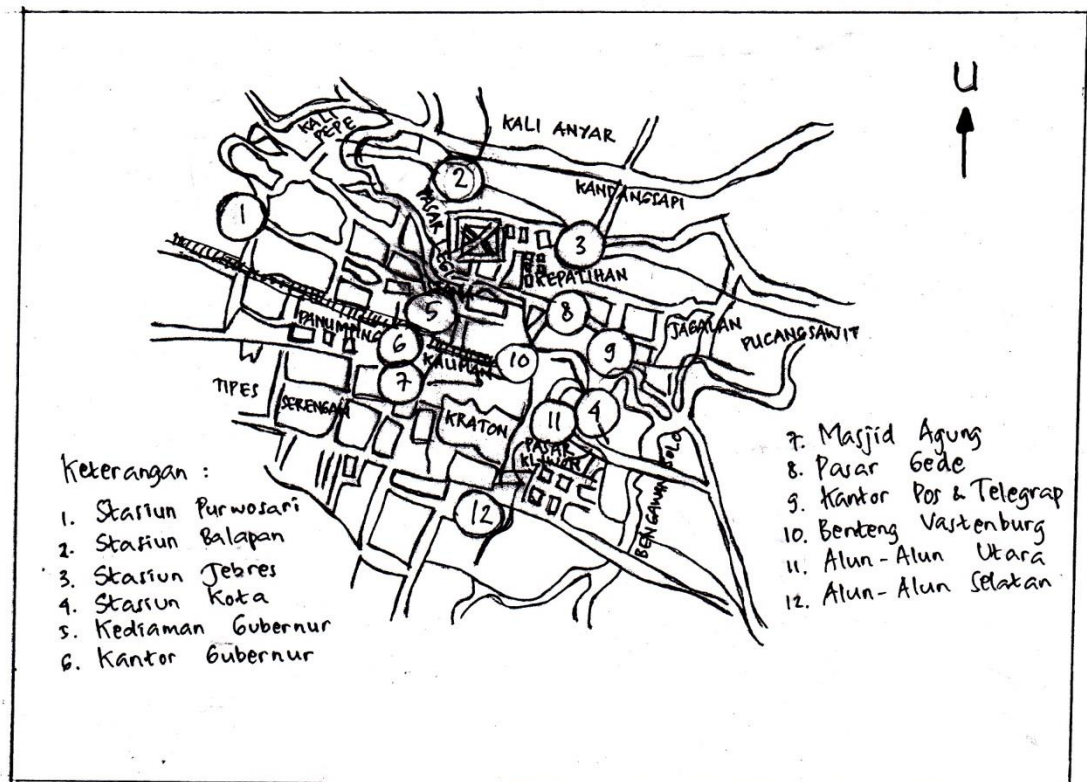 U
KALI PEPE
KALI ANYAR
KANDANGSAPI
PASAR
LEGI
KEPATIHAN
JAGALAN
PUCANGSAWIT
PANUMPING
KAUMAN
TIPES
SERENGAN
KRATON
PASAR
KLIWON
BENGAWAN SOLO
1
2
3
5
8
6
9
10
7
4
11
12
Keterangan :
1. Stasiun Purwosari
2. Stasiun Balapan
3. Stasiun Jebres
4. Stasiun Kota
5. Kediaman Gubernur
6. Kantor Gubernur
7. Masjid Agung
8. Pasar Gede
9. Kantor Pos & Telegrap
10. Benteng Vastenburg
11. Alun-Alun Utara
12. Alun-Alun Selatan